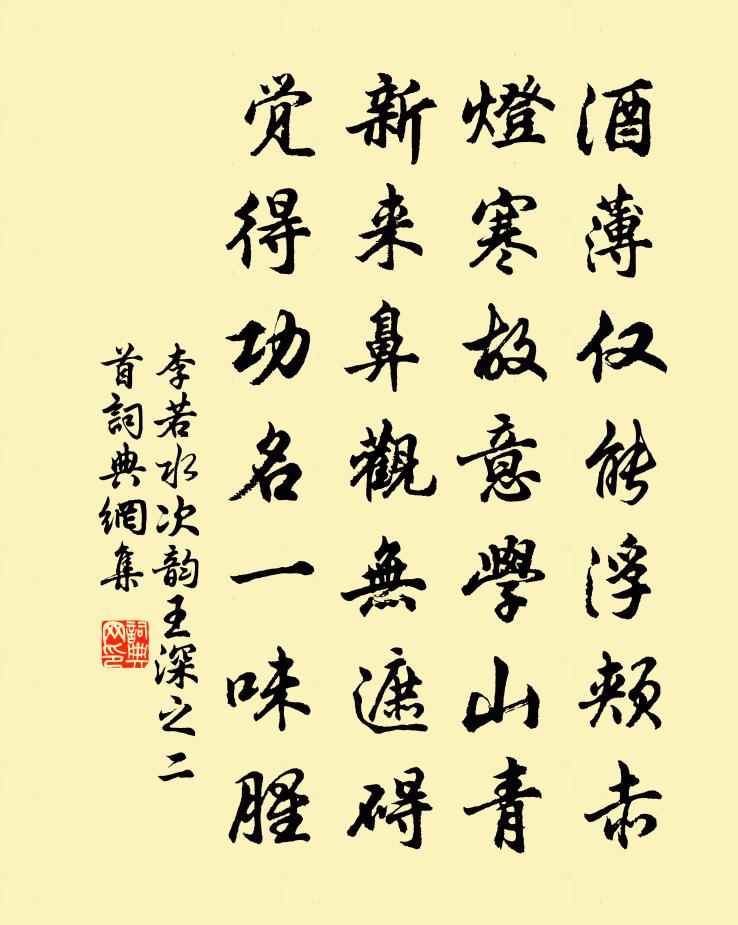 酒薄仅能浮颊赤
燈寒故意學山青
新来鼻觀無遮碍
觉得功名一味腥
李若水次韵王深之二
首詞典網集
詞典
网印